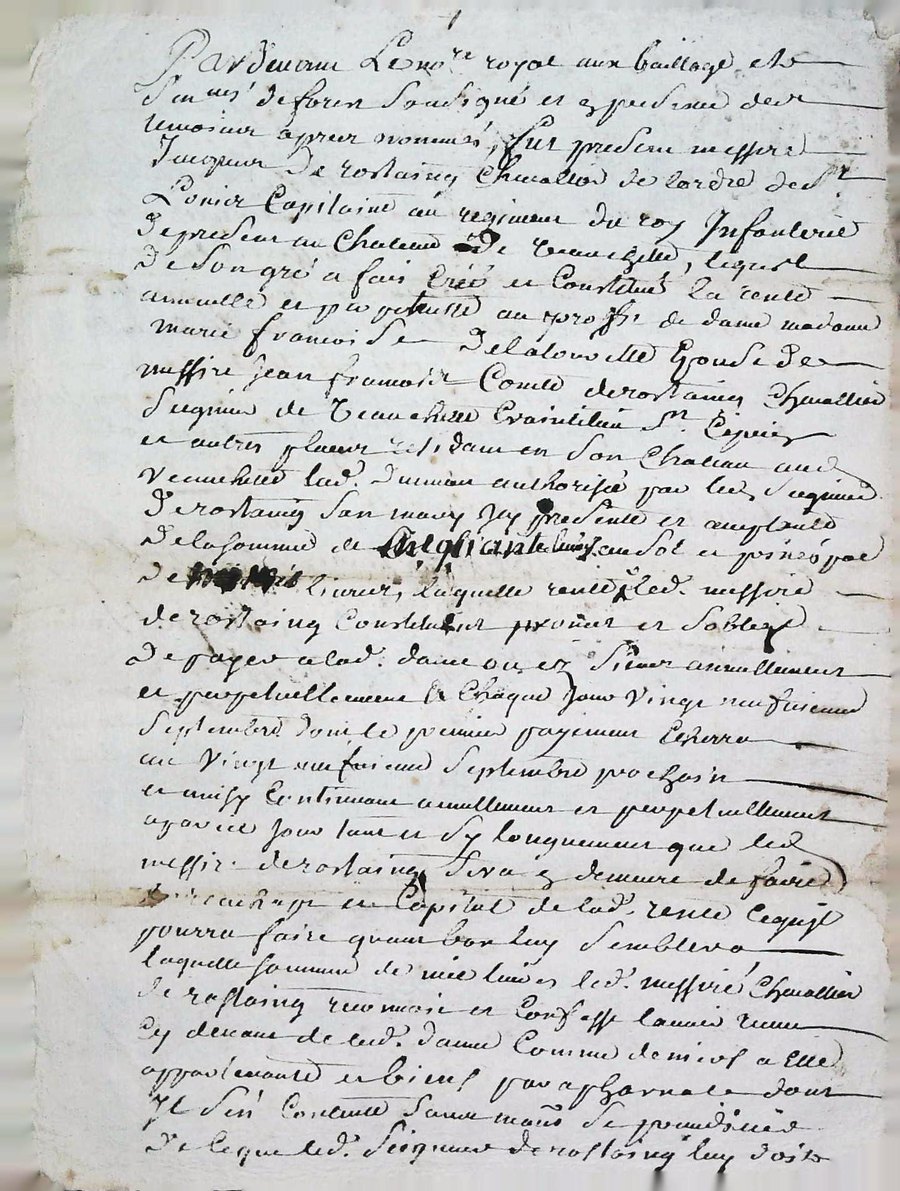 Pardevant Le no.re royal aux bailliage et
Sen.ées de forest Soubsigné et en presence des
temoins apres nommés, fut present messire
Jacques De rostaing Chevallier de lordre de St
Louis Capitaine au regiment du roy Infanterie
De present au Chateau De Veauchette, lequel
De Son gré a fait Créé et Constitué la rente
annuelle et perpetuelle au proffit de dame madame
marie francoise Delatourette Epouse De
messire jean francois Comte derostaing Chevallier
Seigneur de Veauchette St Ciprien
et autres places residant en Son Chateau aud.
Veauchette lad. Dame authorisée par led. Seigneur
De rostaing Son mary Icy presente et acceptante
De la somme de Cinquante livres au Sol et principal
De livres, laquelle rente led. messire
de rostaing Constituant promet et Soblige
De payer a lad. dame ou es Siens annuellement
et perpetuellement a Chaque Jour Vingt neufvieme
Septembre dont le premier payement Echerra
au Vingt neufvieme Septembre prochain
et ainsy Continuant annuellement et perpetuellement
a pareil Jour tant et Sy longuement que led.
messire derostaing Sera en demeure de faire
rachapt et Capital de lad. rente Cequil
pourra faire quant bon luy Semblera
laquelle somme de mil livres led. messire Chevallier
de rostaing reconnoit et Confesse lavoir receue
Cy devant de lad. dame Comme deniers a Elle
appartenants et biens paraphernale dont
Il Sen Contente Sauf mais Se
De ce que led. Seigneur derostaing luy doit